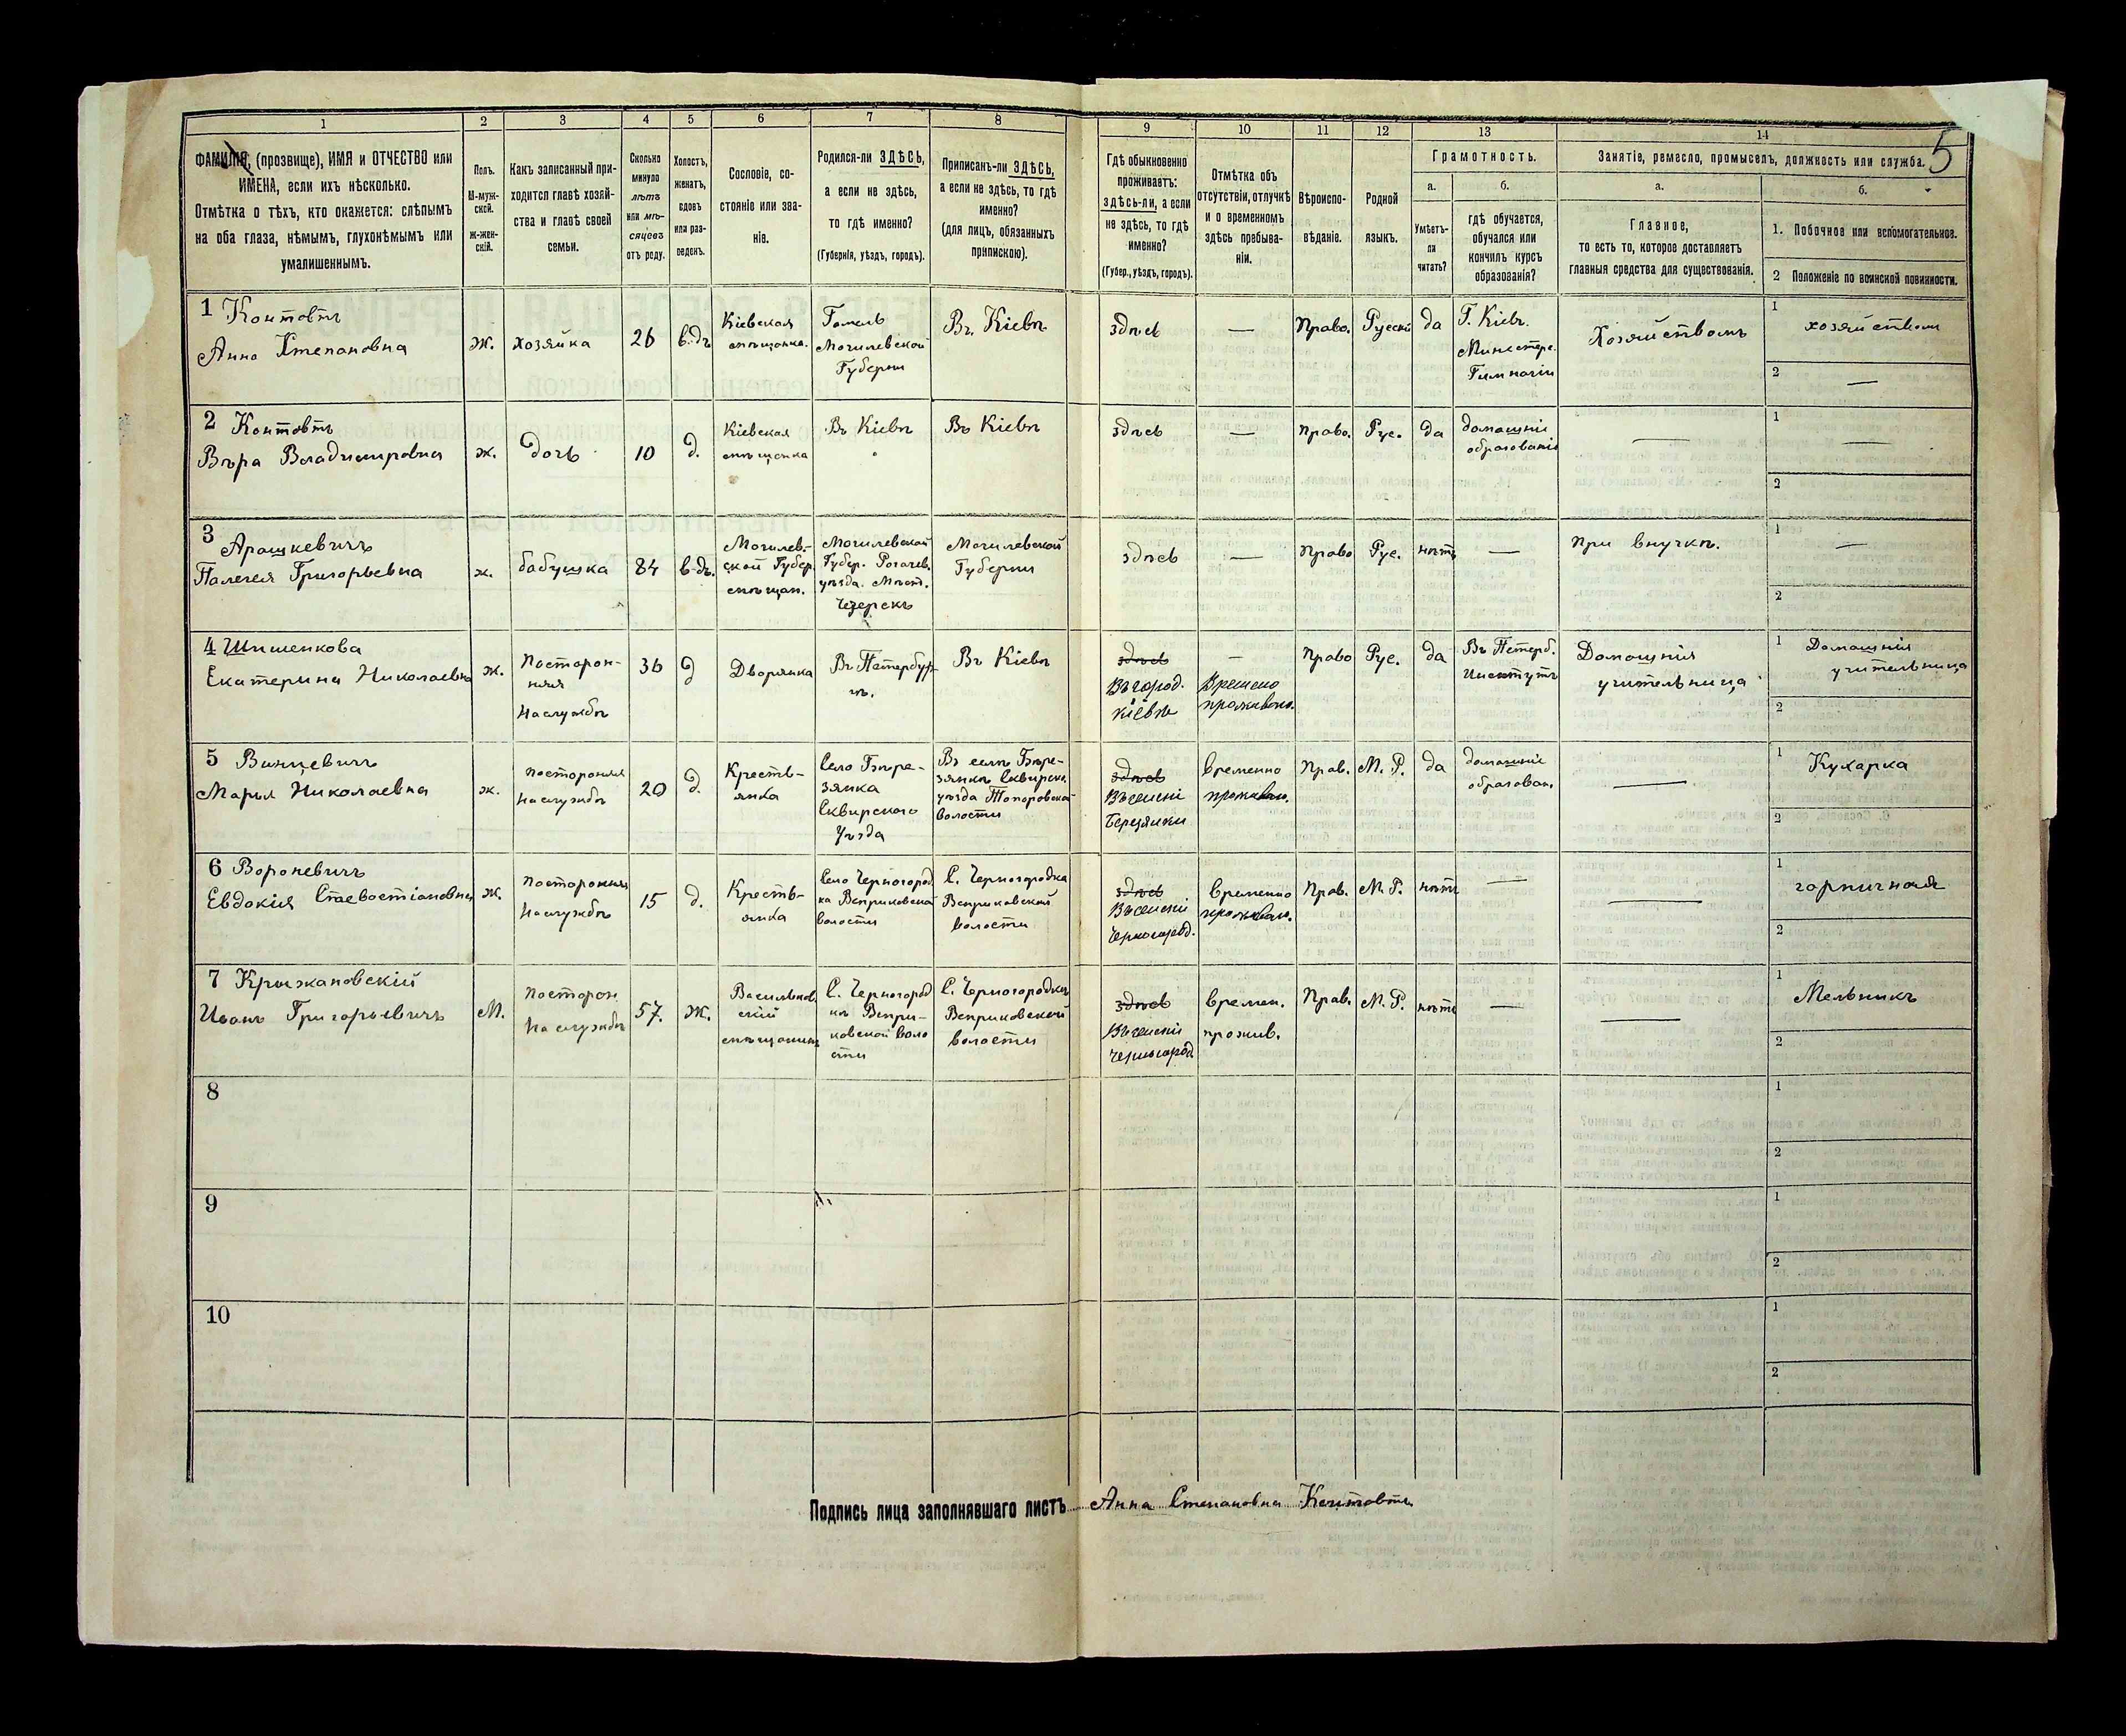 1 2 3 4 5 6 7 8 9 10 11 12 13 14
5
ФАМИЛІЯ, (прозвище), ИМЯ и ОТЧЕСТВО или
ИМЕНА, если ихъ нѣсколько.
Отмѣтка о тѣхъ, кто окажется: слѣпымъ
на оба глаза, нѣмымъ, глухонѣмымъ или
умалишеннымъ.
Полъ.
М-муж-
ской.
Ж-жен-
скій.
Какъ записанный при-
ходится главѣ хозяй-
ства и главѣ своей
семьи.
Сколько
минуло
лѣтъ
или мѣ-
сяцевъ
отъ роду.
Холостъ,
женатъ,
вдовъ
или раз-
веденъ.
Сословіе, со-
стояніе или зва-
ніе.
Родился-ли ЗДѢСЬ,
а если не здѣсь,
то гдѣ именно?
(Губернія, уѣздъ, городъ).
Приписанъ-ли ЗДѢСЬ,
а если не здѣсь, то гдѣ
именно?
(для лицъ, обязанныхъ
припискою).
Гдѣ обыкновенно
проживаетъ:
здѣсь-ли, а если
не здѣсь, то гдѣ
именно?
(Губер., уѣздъ, городъ).
Отмѣтка объ
отсутствіи, отлучкѣ
и о временномъ
здѣсь пребыва-
ніи.
Вѣроиспо-
вѣданіе.
Родной
языкъ.
Грамотность.
а.
Умѣетъ-
ли
читать?
б.
гдѣ обучается,
обучался или
кончилъ курсъ
образованія?
Занятіе, ремесло, промыселъ, должность или служба.
а.
Главное,
то есть то, которое доставляетъ
главныя средства для существованія.
б.
1. Побочное или вспомогательное.
2 Положеніе по воинской повинности.
1 Контовтъ
Анна Степановна
ж.
хозяйка
26
в-дъ
Кіевская
мѣщанка.
Гомель
Могилевской
Губерни
Въ Кіевѣ
здѣсь
—
Право.
Русскій
да
Г. Кіевъ.
Министерс.
Гимназіи
Хозяйствомъ
1
хозяйством
2 —
2 Контовтъ
Вѣра Владимировна
ж.
дочь
10
д.
Кіевская
мѣщанка
Въ Кіевѣ
Въ Кіевѣ
здѣсь
—
Право.
Рус.
да
домашніе
образованіе
—
1 —
2
3 Арашкевичъ
Палегея Григорьевна
ж.
бабушка
84
в-дъ.
Могилев-
ской Губер.
мѣщан.
Могилевской
Губер. Рогачев.
уѣзда. Мѣст.
Чечерскъ
Могилевской
Губерни
здѣсь
—
Право
Рус.
нѣтъ
—
при внучкѣ.
1 —
2
4 Шишенкова
Екатерина Николаевна
ж.
Посторон-
няя
На службѣ
36
д
Дворянка
Въ Петербур-
гѣ.
Въ Кіевѣ
здѣсь
Въ город.
Кіевѣ
—
Времено
проживаю.
Право
Рус.
да
Въ Петерб.
Институтѣ
Домашнія
учительница
1 Домашнія
учительница
2
5 Винцевичъ
Марья Николаевна
ж.
посторонняя
На службѣ
20
д.
Кресть-
янка
Село Бере-
зянка
Сквирского
Уѣзда
Въ селѣ Бере-
зянкѣ Сквирск.
уѣзда Топоровской
волости
здѣсь
Въ селеніи
Березянки
Временно
проживаю.
Прав.
М. Р.
да
домашніе
образован.
—
1 Кухарка
2
6 Вороневичъ
Евдокія Севастіановна
ж.
посторонняя
На службѣ
15
д.
Кресть-
янка
Село Черногород
ка Веприковской
волости
С. Черногородка
Веприковской
волости
здѣсь
Въ селеніи
Черногород.
Временно
проживаю.
Прав.
М. Р.
нѣтъ
—
—
1 горничная
2
7 Крыжановскій
Иванъ Григорьевичъ
М.
Посторон
На службѣ
57.
Ж.
Васильков.
скій
мѣщанинъ
С. Черногород
кѣ Вепри-
ковской воло
сти
С. Черногородкѣ
Веприковской
волости
здѣсь
Въ селеніи
Черногород
Времен.
прожив.
Прав.
М. Р.
нѣтъ
—
—
1 Мельникъ
2
8
1
2
9
1
2
10
1
2
Подпись лица заполнявшаго листъ Анна Степановна Контовтъ